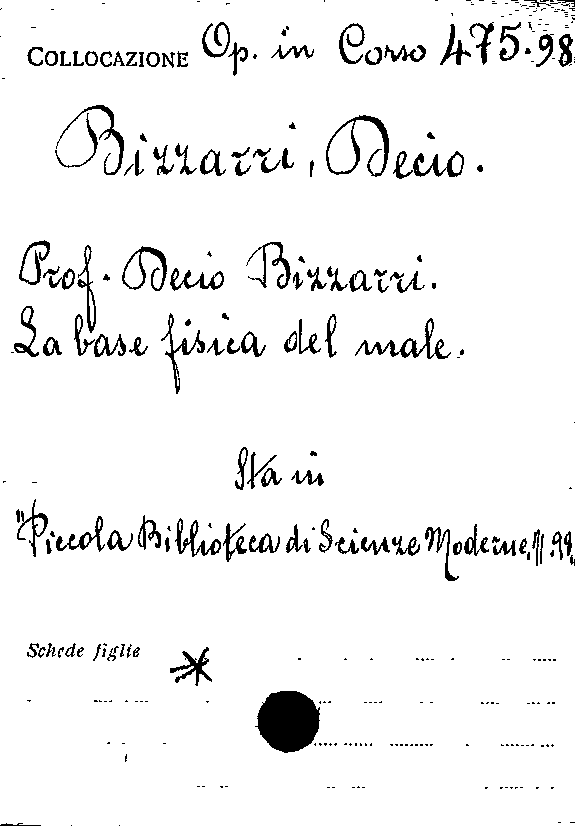 COLLOCAZIONE Op. in Corso 475.98
Bizzarri, Decio.
Prof. Decio Bizzarri.
La base fisica del male.
Sta in
"Piccola Biblioteca di Scienze Moderne,, N. 99
Schede figlie